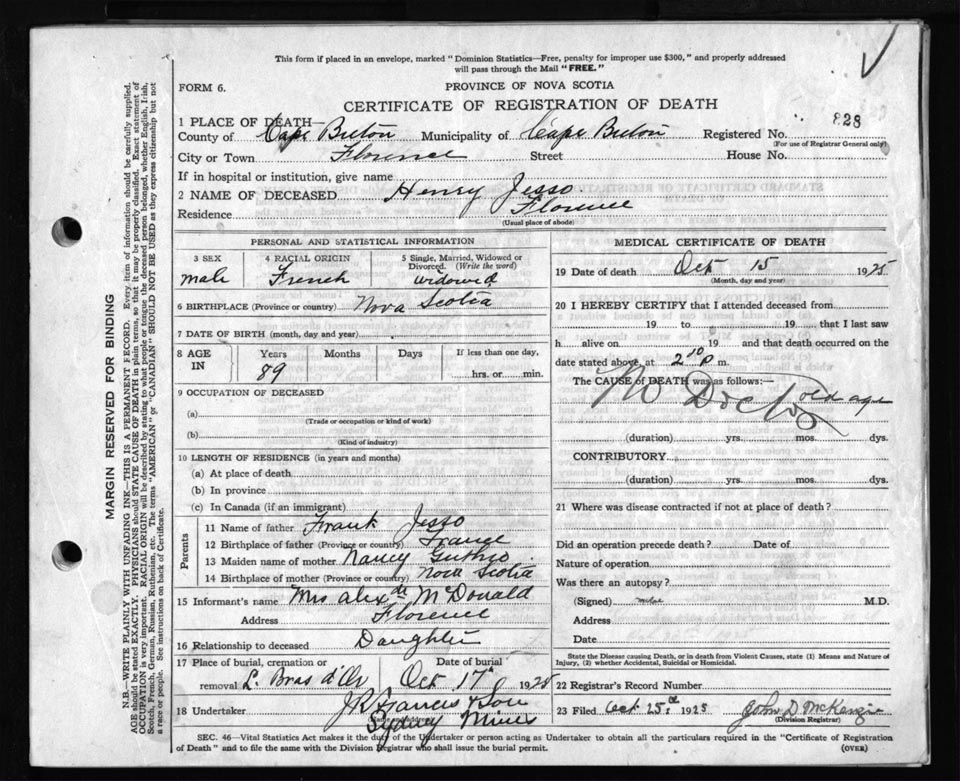 This form if placed in an envelope, marked "Dominion Statistics—Free, penalty for improper use $300," and properly addressed
will pass through the Mail "FREE."
FORM 6.
PROVINCE OF NOVA SCOTIA
CERTIFICATE OF REGISTRATION OF DEATH
1 PLACE OF DEATH—
County of Cape Breton Municipality of Cape Breton Registered No. 828
(For use of Registrar General only)
City or Town Florence Street House No.
If in hospital or institution, give name
2 NAME OF DECEASED Henry Jesso
Residence Florence
(Usual place of abode)
PERSONAL AND STATISTICAL INFORMATION
3 SEX male
4 RACIAL ORIGIN French
5 Single, Married, Widowed or
Divorced. (Write the word)
widowed
6 BIRTHPLACE (Province or country) Nova Scotia
7 DATE OF BIRTH (month, day and year)
8 AGE IN Years 89 Months Days If less than one day,
hrs. or min.
9 OCCUPATION OF DECEASED
(a)
(Trade or occupation or kind of work)
(b)
(Kind of industry)
10 LENGTH OF RESIDENCE (in years and months)
(a) At place of death
(b) In province
(c) In Canada (if an immigrant)
Parents
11 Name of father Frank Jesso
12 Birthplace of father (Province or country) France
13 Maiden name of mother Nancy Guthro
14 Birthplace of mother (Province or country) Nova Scotia
15 Informant's name Mrs Alexdr McDonald
Address Florence
16 Relationship to deceased Daughter
17 Place of burial, cremation or
removal L. Bras d'Or
Date of burial
Oct 17th 1925
18 Undertaker J R Francis & Son
(Name and address)
Sydney Mines
MEDICAL CERTIFICATE OF DEATH
19 Date of death Oct 15 1925
(Month, day and year)
20 I HEREBY CERTIFY that I attended deceased from
19 to 19 that I last saw
h alive on 19 and that death occurred on the
date stated above, at 2 p m.
The CAUSE of DEATH was as follows:—
No Doctor old age
(duration) yrs. mos. dys.
CONTRIBUTORY
(duration) yrs. mos. dys.
21 Where was disease contracted if not at place of death?
Did an operation precede death? Date of
Nature of operation
Was there an autopsy?
(Signed) M.D.
Address
Date
State the Disease causing Death, or in death from Violent Causes, state (1) Means and Nature of
Injury, (2) whether Accidental, Suicidal or Homicidal.
22 Registrar's Record Number
23 Filed Oct 25th 1925 John D McKenzie
(Division Registrar)
SEC. 46—Vital Statistics Act makes it the duty of the Undertaker or person acting as Undertaker to obtain all the particulars required in the "Certificate of Registration
of Death" and to file the same with the Division Registrar who shall issue the burial permit.
(OVER)
MARGIN RESERVED FOR BINDING
N.B.—WRITE PLAINLY WITH UNFADING INK—THIS IS A PERMANENT RECORD. Every item of information should be carefully supplied.
AGE should be stated EXACTLY. PHYSICIANS should STATE CAUSE OF DEATH in plain terms, so that it may be properly classified. Exact statement of
OCCUPATION is very important. RACIAL ORIGIN will be described by stating to what people or tongue the deceased person belonged, whether English, Irish,
Scotch, French, German, Russian, Ruthenian, etc. The terms "AMERICAN" or "CANADIAN" SHOULD NOT BE USED as they express citizenship but not
a race or people. See instructions on back of Certificate.